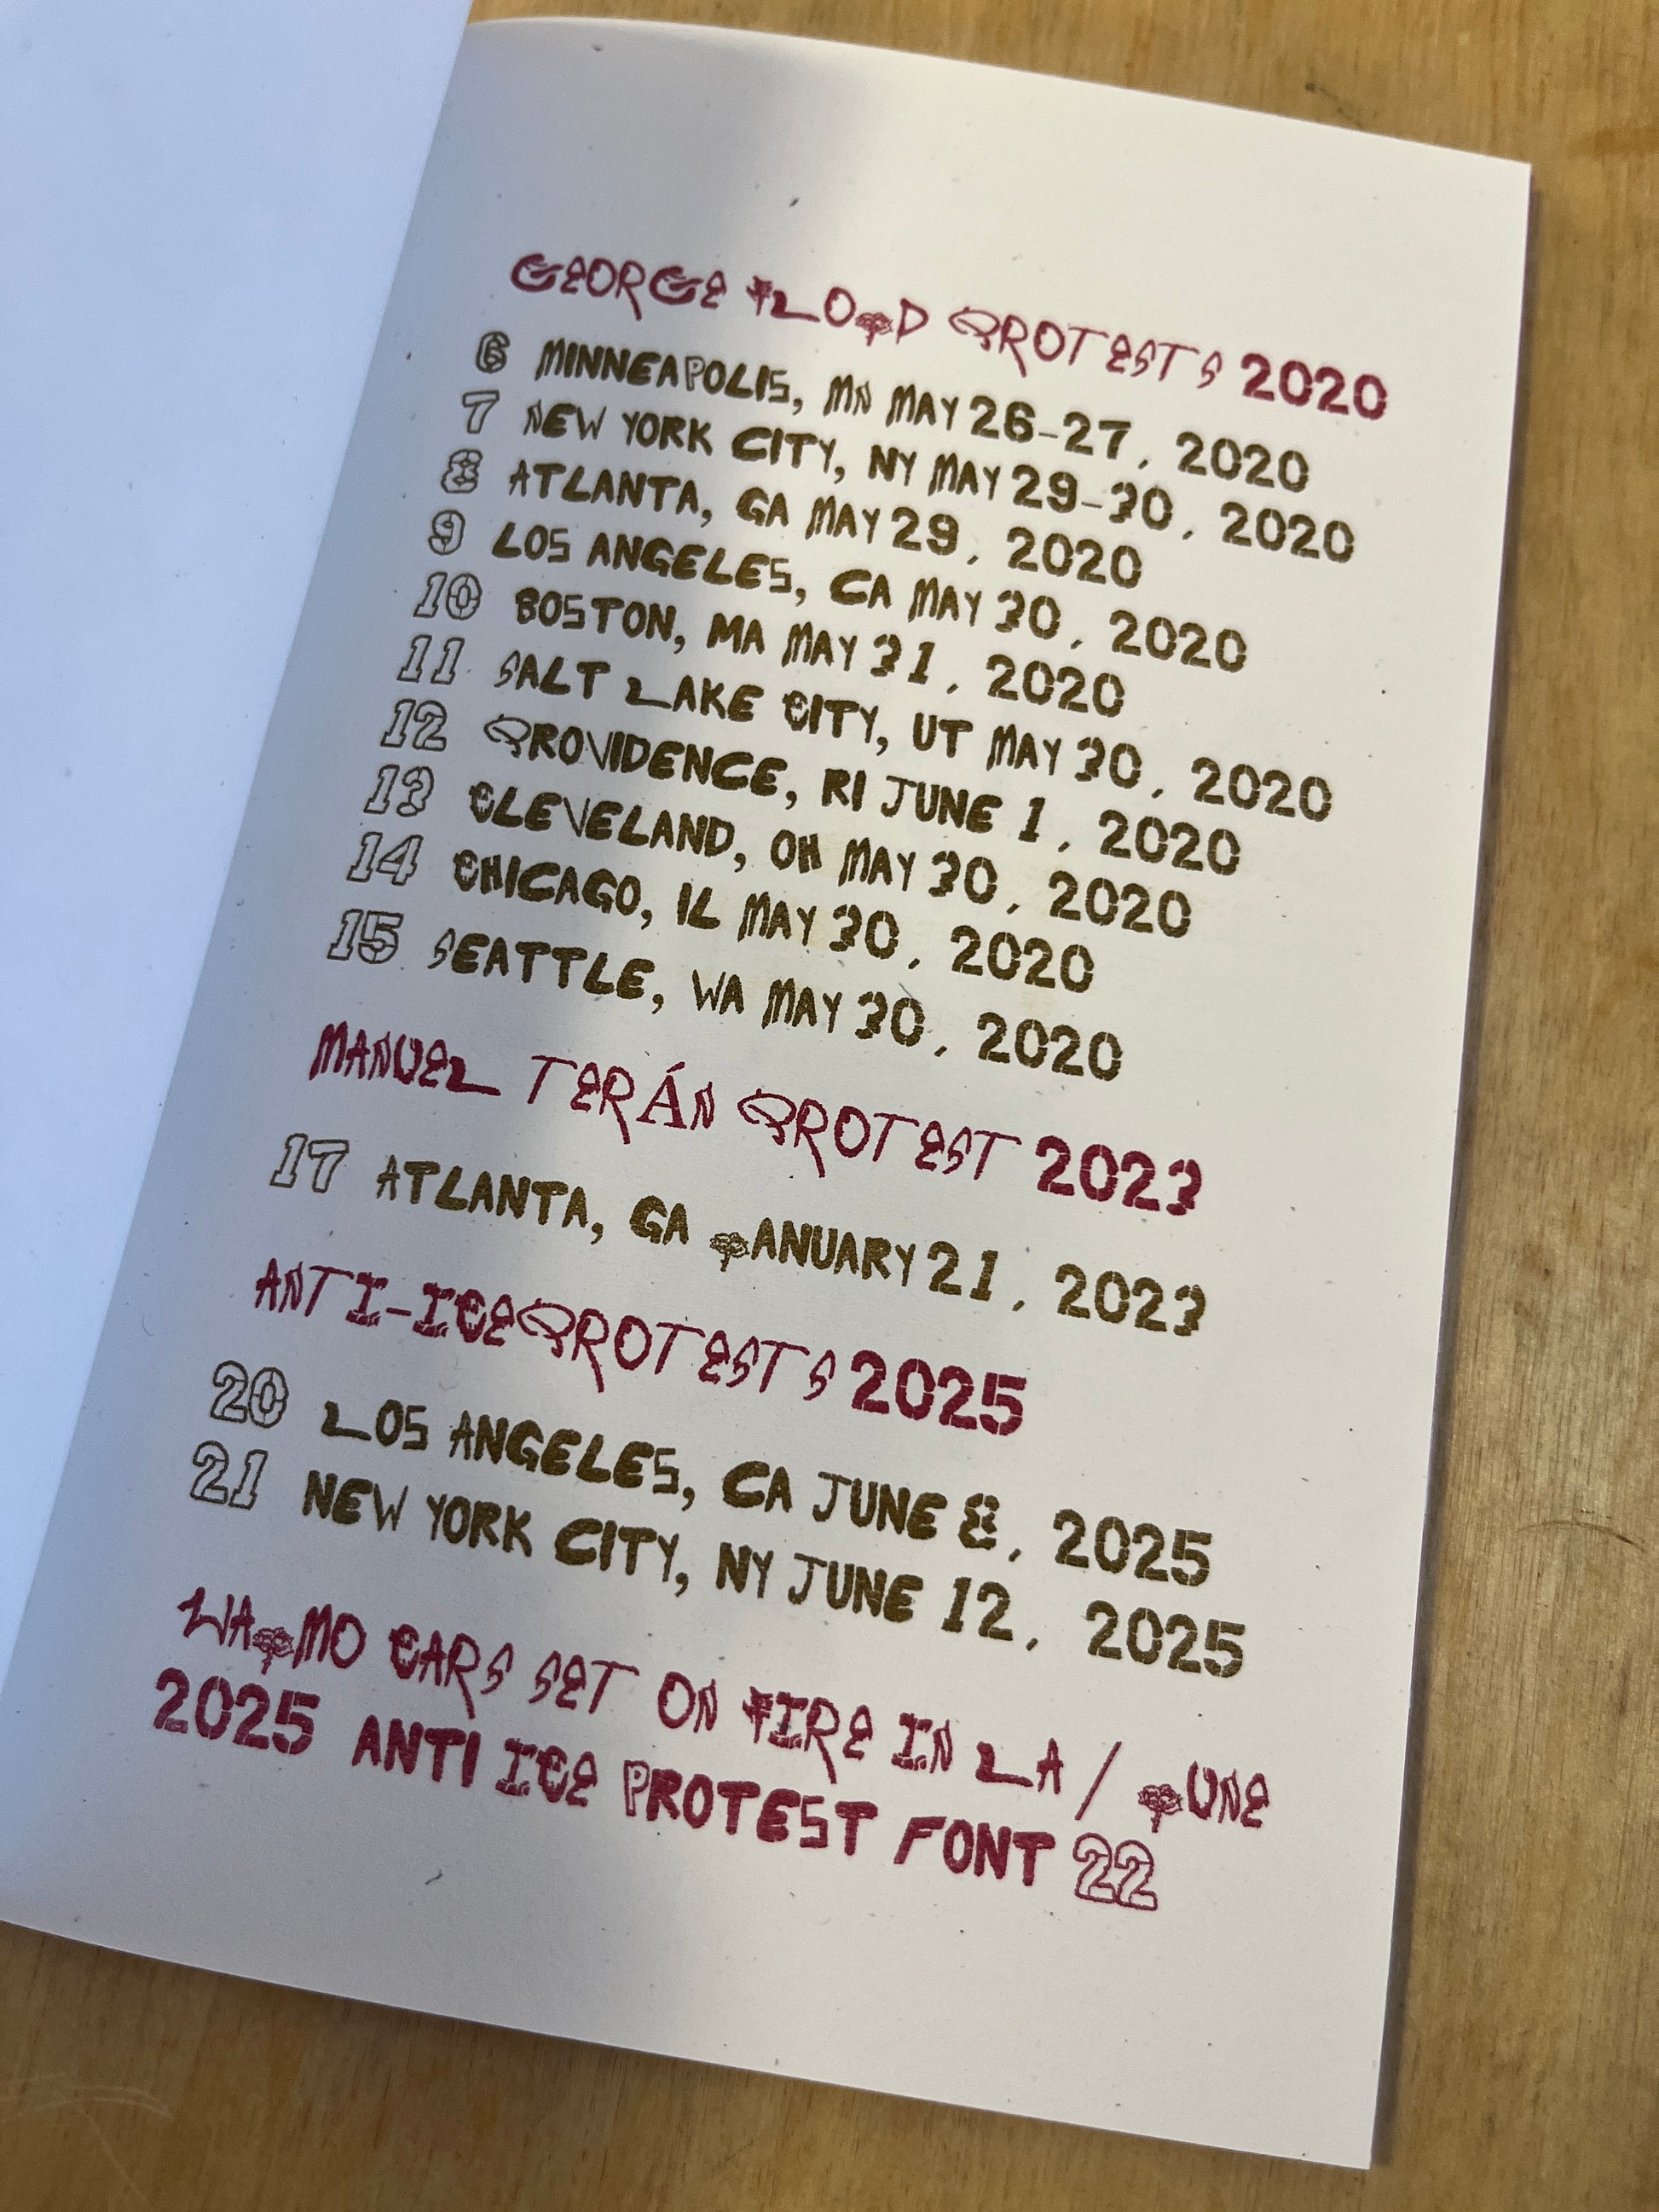 GEORGE FLOYD PROTESTS 2020
6 MINNEAPOLIS, MN MAY 26-27, 2020
7 NEW YORK CITY, NY MAY 29-30, 2020
8 ATLANTA, GA MAY 29, 2020
9 LOS ANGELES, CA MAY 30, 2020
10 BOSTON, MA MAY 31, 2020
11 SALT LAKE CITY, UT MAY 30, 2020
12 PROVIDENCE, RI JUNE 1, 2020
13 CLEVELAND, OH MAY 30, 2020
14 CHICAGO, IL MAY 30, 2020
15 SEATTLE, WA MAY 30, 2020
MANUEL TERÁN PROTEST 2023
17 ATLANTA, GA JANUARY 21, 2023
ANTI-ICE PROTESTS 2025
20 LOS ANGELES, CA JUNE 8, 2025
21 NEW YORK CITY, NY JUNE 12, 2025
WAYMO CARS SET ON FIRE IN LA / JUNE
2025 ANTI ICE PROTEST FONT 22